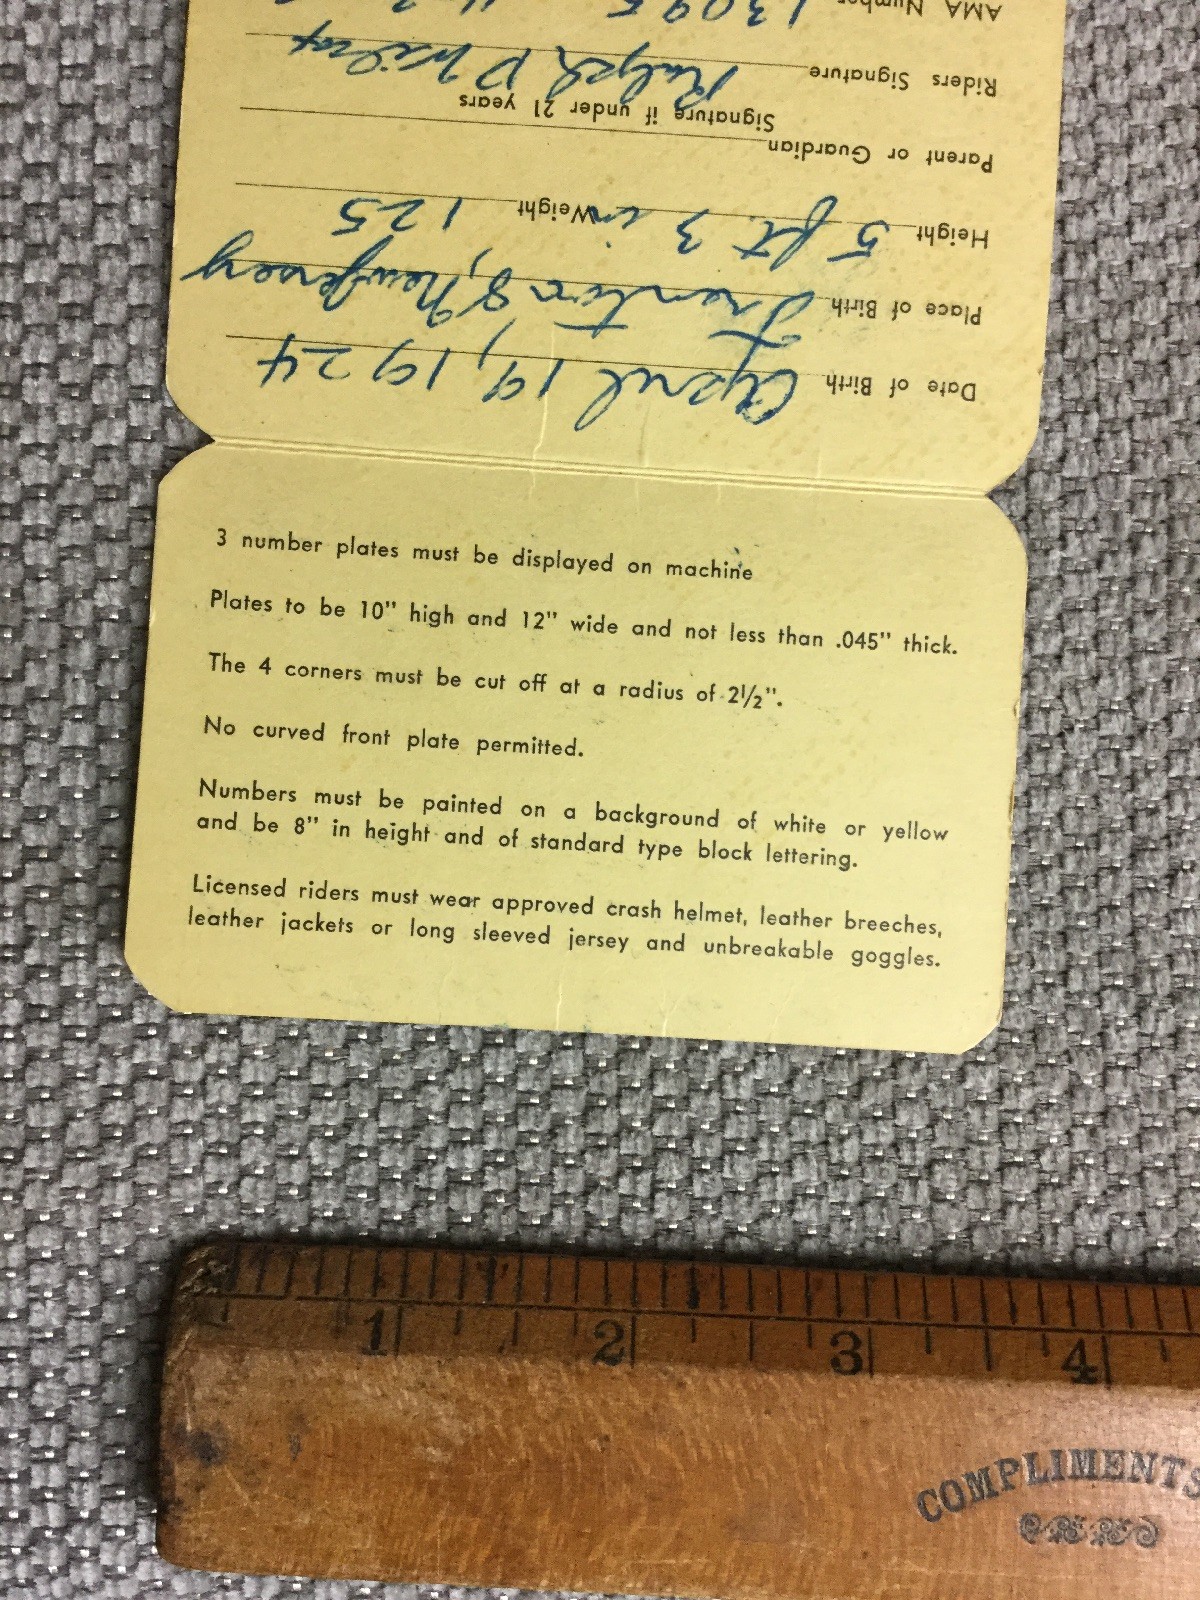 AMA Number 13095
Riders Signature Ralph D
Parent or Guardian
Signature if under 21 years
Height 5 ft. 3 in Weight 125
Place of Birth Trenton 8, New Jersey
Date of Birth April 19, 1924
3 number plates must be displayed on machine
Plates to be 10" high and 12" wide and not less than .045" thick.
The 4 corners must be cut off at a radius of 2½".
No curved front plate permitted.
Numbers must be painted on a background of white or yellow
and be 8" in height and of standard type block lettering.
Licensed riders must wear approved crash helmet, leather breeches,
leather jackets or long sleeved jersey and unbreakable goggles.
1 2 3 4
COMPLIMENTS